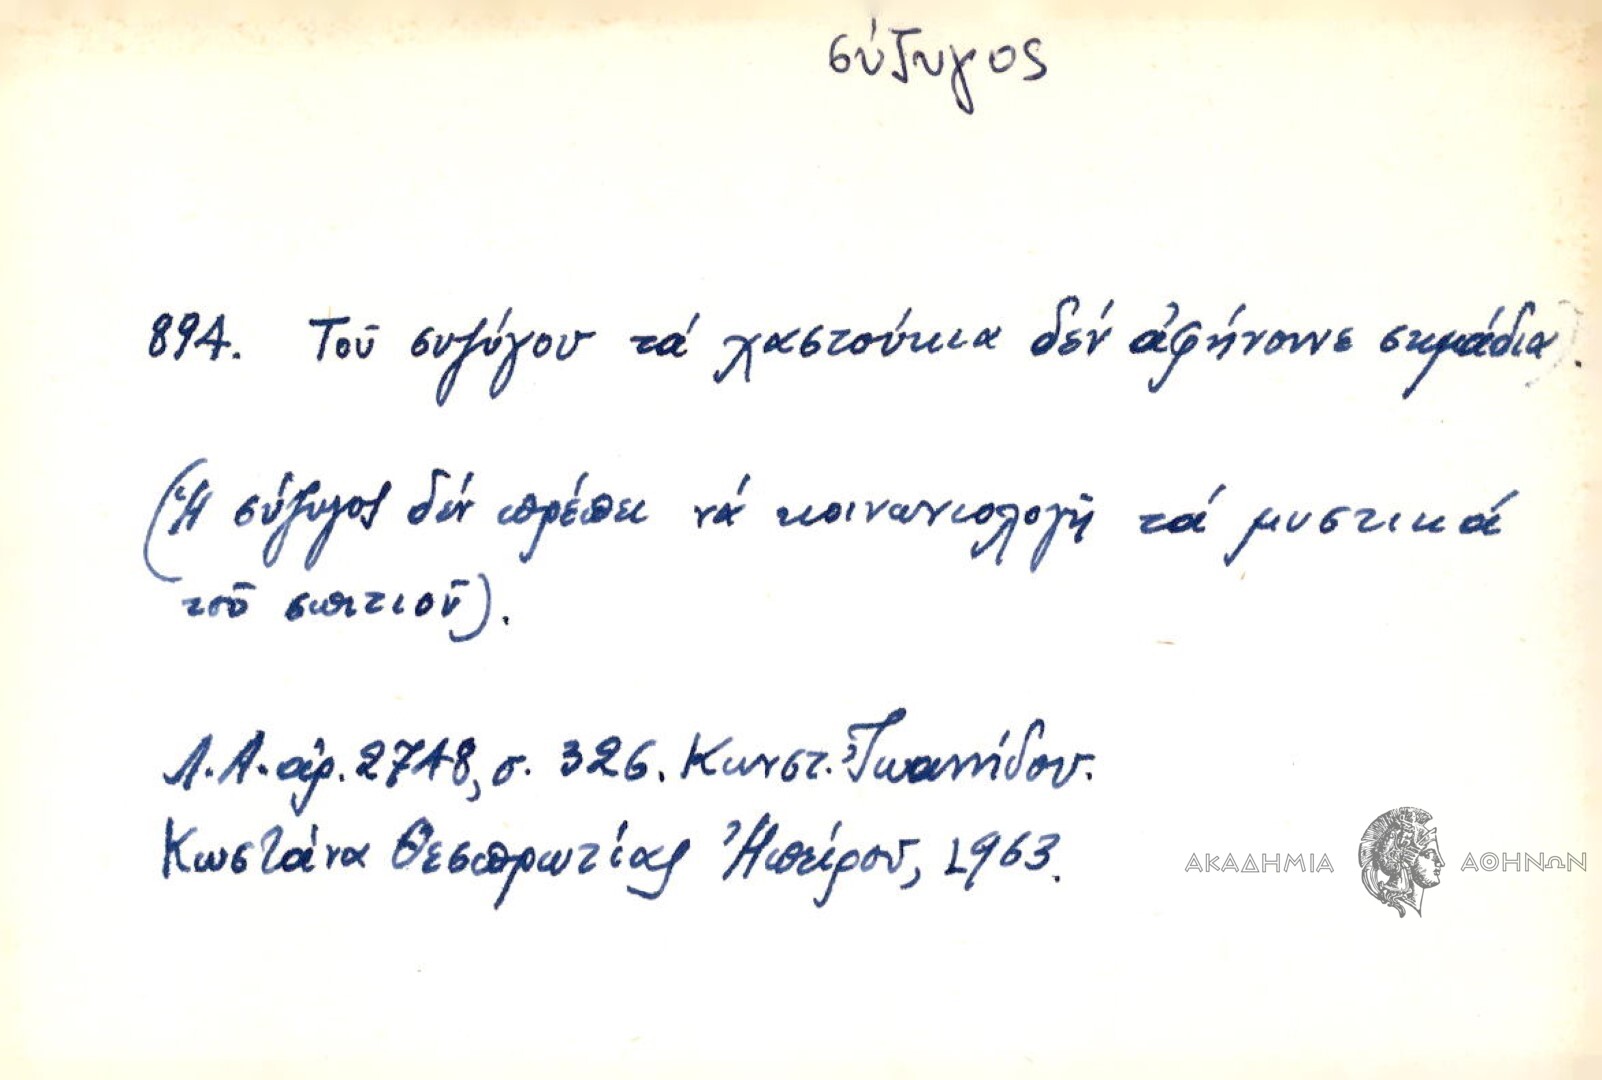 σύζυγος
894. Τοῦ συζύγου τά χαστούκια δέν ἀφήνουνε σημάδια.
(Ἡ σύζυγος δέν πρέπει νά κοινωνιολογῇ τά μυστικά
τοῦ σπιτιοῦ).
Λ.Α. ἀρ. 2748, σ. 326. Κωνστ. Ἰωαννίδου.
Κωστάνα Θεσπρωτίας Ἠπείρου, 1963.
ΑΚΑΔΗΜΙΑ ΑΘΗΝΩΝ